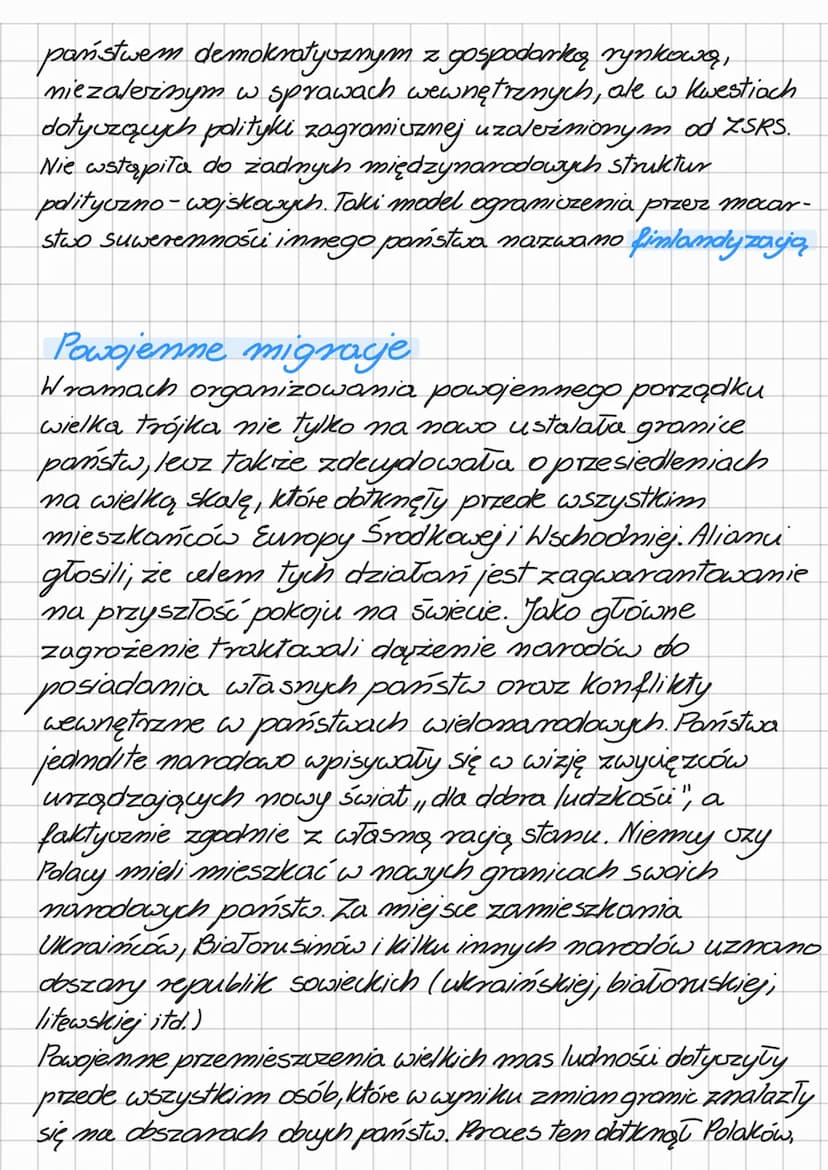 państwem demokratycznym z gospodarką rynkową,
niezależnym w sprawach wewnętrznych, ale w kwestiach
dotyczących polityki zagranicznej uzależnionym od ZSRS.
Nie wstąpiła do żadnych międzynarodowych struktur
polityczno-wojskowych. Taki model ograniczenia przez mocar-
stwo suwerenności innego państwa nazwano finlandyzacją
Powojenne migracje
W ramach organizowania powojennego porządku
wielka trójka nie tylko na nowo ustalała granice
państw, lecz także zdecydowała o przesiedleniach
na wielką skalę, które dotknęły przede wszystkim
mieszkańców Europy Środkowej i Wschodniej. Alianci
głosili, że celem tych działań jest zagwarantowanie
na przyszłość pokoju na świecie. Jako główne
zagrożenie traktowali dążenie narodów do
posiadania własnych państw oraz konflikty
wewnętrzne w państwach wielonarodowych. Państwa
jednolite narodowo wpisywały się w wizję zwycięzców
urządzających nowy świat „dla dobra ludzkości", a
faktycznie zgodnie z własną racją stanu. Niemcy czy
Polacy mieli mieszkać w nowych granicach swoich
narodowych państw. Za miejsce zamieszkania
Ukraińców, Białorusinów i kilku innych narodów uznano
obszary republik sowieckich (ukraińskiej, białoruskiej,
litewskiej itd.)
Powojenne przemieszczenia wielkich mas ludności dotyczyły
przede wszystkim osób, które w wyniku zmian granic znalazły
się na obszarach obcych państw. Proces ten dotknął Polaków,